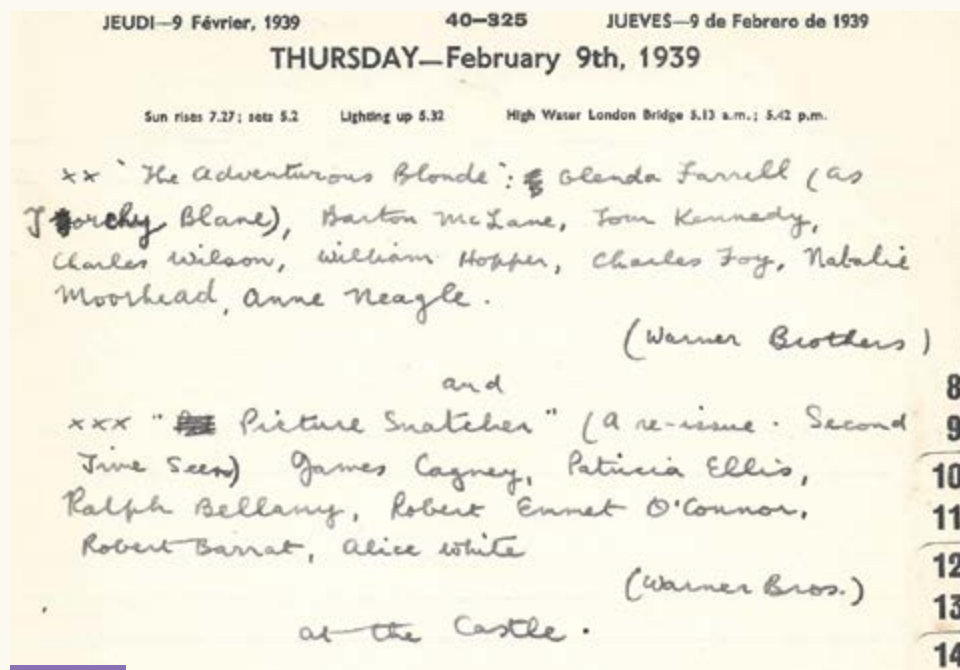 JEUDI—9 Février, 1939 40—325 JUEVES—9 de Febrero de 1939
THURSDAY—February 9th, 1939
Sun rises 7.27; sets 5.2 Lighting up 5.32 High Water London Bridge 5.13 a.m.; 5.42 p.m.
xx "The Adventurous Blonde": Glenda Farrell (as
Torchy Blane), Barton McLane, Tom Kennedy,
Charles Wilson, William Hopper, Charles Foy, Natalie
Moorhead, Anne Neagle.
(Warner Brothers)
and
8
xxx " Picture Snatcher" (A re-issue. Second
9
Time Seen) James Cagney, Patricia Ellis,
10
Ralph Bellamy, Robert Emmet O'Connor,
11
Robert Barrat, Alice White
12
(Warner Bros.)
13
at the Castle.
14